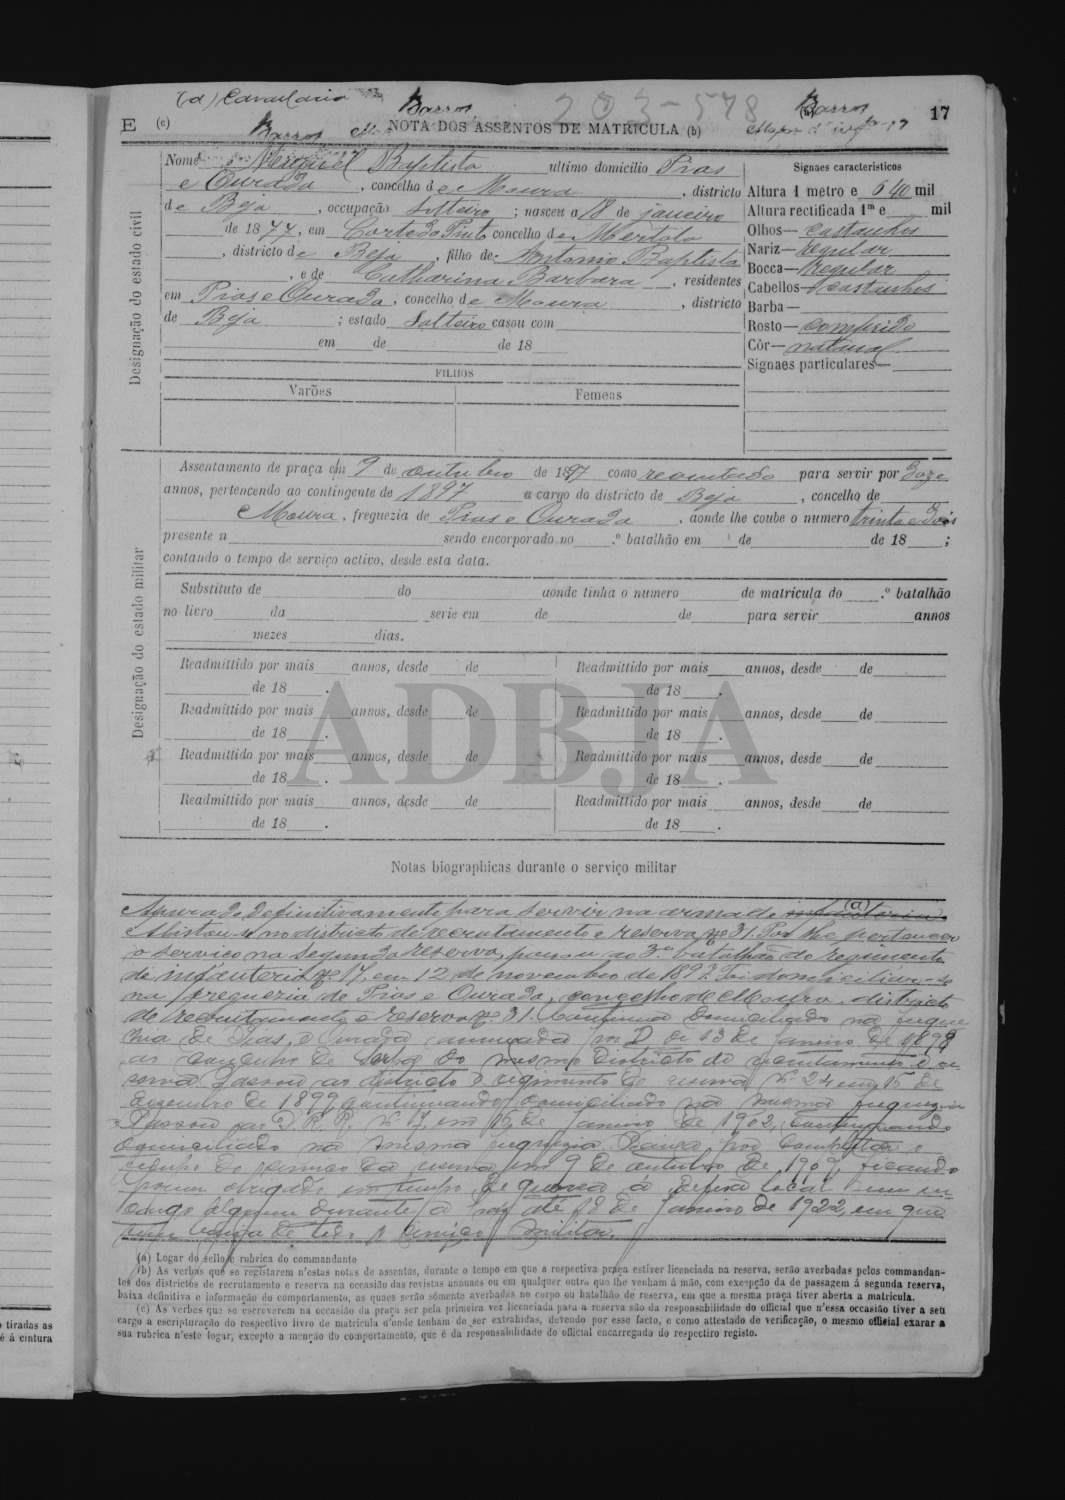 (a) Cavallaria
Barros
203-578
Barros
17
E (c) Barros NOTA DOS ASSENTOS DE MATRICULA (b)
Designação do estado civil
Nome Baptista ultimo domicilio Pias
e Ourada, concelho de Moura, districto
de Beja, occupação Solteiro; nasceu a 18 de janeiro
de 1877, em Corte do Pinto concelho de Mertola
, districto de Beja, filho de Antonio Baptista
, e de Catharina Barbara, residentes
em Pias e Ourada, concelho de Moura, districto
de Beja; estado Solteiro casou com
em de de 18
FILHOS
Varões Femeas
Signaes caracteristicos
Altura 1 metro e 640 mil
Altura rectificada 1m e mil
Olhos— castanhos
Nariz— regular
Bocca— regular
Cabellos— castanhos
Barba—
Rosto— comprido
Côr— natural
Signaes particulares—
Designação do estado militar
Assentamento de praça em 9 de outubro de 1897 como recrutado para servir por doze
annos, pertencendo ao contingente de 1897 a cargo do districto de Beja, concelho de
Moura, freguezia de Pias e Ourada, aonde lhe coube o numero trinta e dois
presente a sendo encorporado no .º batalhão em de de 18 ;
contando o tempo de serviço activo, desde esta data.
Substituto de do aonde tinha o numero de matricula do .º batalhão
no livro da serie em de de para servir annos
mezes dias.
Readmittido por mais annos, desde de Readmittido por mais annos, desde de
de 18 . de 18 .
Readmittido por mais annos, desde de Readmittido por mais annos, desde de
de 18 . de 18 .
Readmittido por mais annos, desde de Readmittido por mais annos, desde de
de 18 . de 18 .
Readmittido por mais annos, desde de Readmittido por mais annos, desde de
de 18 . de 18 .
ADBJA
Notas biographicas durante o serviço militar
Apurado definitivamente para servir na arma de infanteria (a)
Alistou-se no districto de recrutamento e reserva nº 31. Por lhe pertencer
o serviço na segunda reserva, passou ao 3º batalhão do regimento
de infanteria nº 17, em 12 de novembro de 1898. Foi domiciliar-se
na freguezia de Pias e Ourada, concelho de Moura, districto
de recrutamento e reserva nº 31. Continua domiciliado na fregue
zia de Pias, e Ourada de 13 de janeiro de 1898
ao concelho de Serpa do mesmo districto de recrutamento e re
serva. Passou ao districto e regimento de reserva nº 24 em 15 de
dezembro de 1899, continuando domiciliado na mesma freguezia
Passou ao D. R. R. nº 17, em 15 de janeiro de 1902, continuando
domiciliado na mesma freguezia. Baixa por completar o
tempo de serviço da reserva em 9 de outubro de 1909, ficando
porem obrigado em tempo de guerra á defeza local sem en
cargo algum durante a paz até 18 de janeiro de 1922, em que
baixa de todo o serviço militar.
(a) Logar do sello e rubrica do commandante
(b) As verbas que se registarem n'estas notas de assentos, durante o tempo em que a respectiva praça estiver licenciada na reserva, serão averbadas pelos commandan-
tes dos districtos de recrutamento e reserva na occasião das revistas annuaes ou em qualquer outra que lhe venham á mão, com excepção da de passagem á segunda reserva,
baixa definitiva e informação do comportamento, as quaes serão sómente averbadas no corpo ou batalhão de reserva, em que a mesma praça tiver aberta a matricula.
(c) As verbas que se escreverem na occasião da praça ser pela primeira vez licenciada para a reserva são da responsabilidade do official que n'essa occasião tiver a seu
cargo a escripturação do respectivo livro de matricula d'onde tenham de ser extrahidas, devendo por esse facto, e como attestado de verificação, o mesmo official exarar a
sua rubrica n'este logar, excepto a menção do comportamento, que é da responsabilidade do official encarregado do respectivo registo.
tiradas as
é á cintura